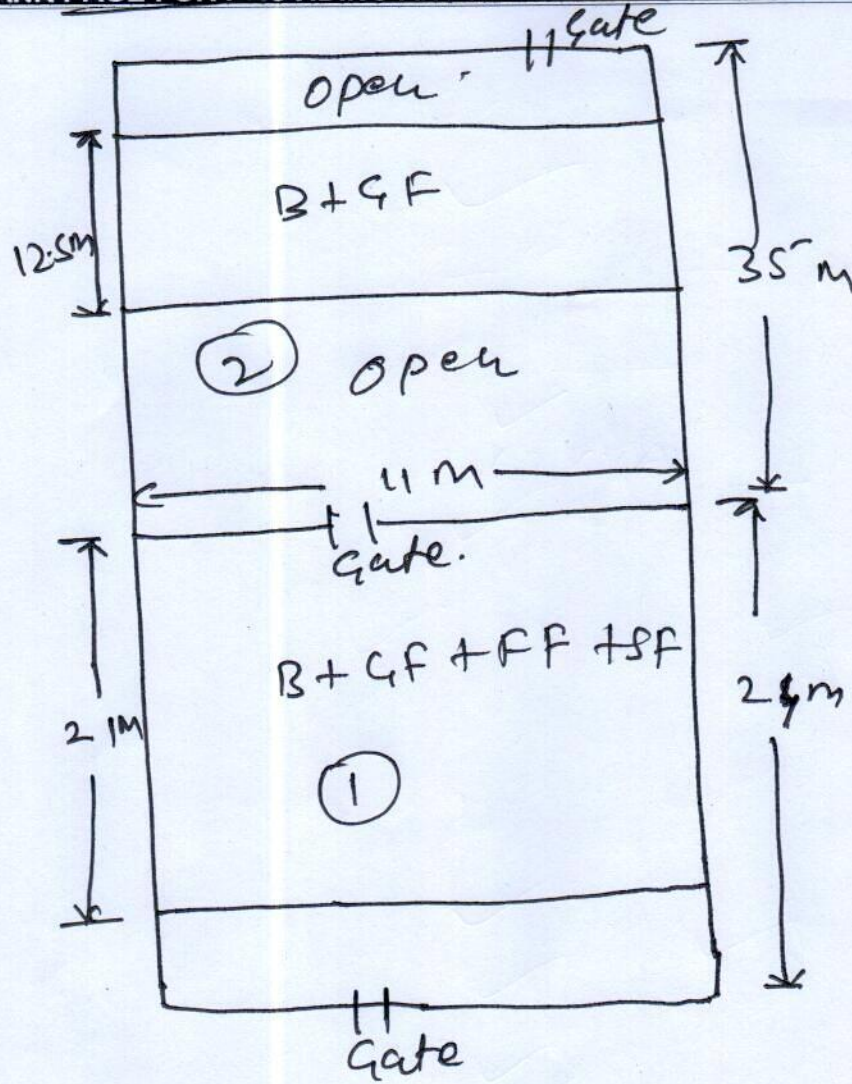 Gate
Open
B+GF
12.5M
35 M
2 Open
11 M
Gate.
B+GF+FF+SF
21M
1
Gate